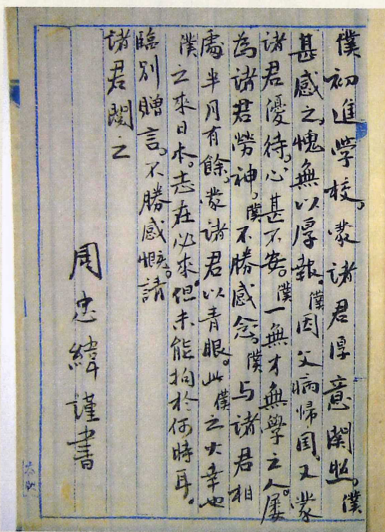 僕初進学校。蒙諸君厚意関照。僕
甚感之。愧無以厚報。僕因父病帰国。又蒙
諸君優待。心甚不安。僕一無才無学之人。屡
為諸君勞神。僕不勝感念。僕与諸君相
處半月有餘。蒙諸君以青眼。此僕之大幸也
僕之来日本。志在必来。但未能拘於何時耳。
臨別贈言。不勝感慨。請
諸君閲之
周忠緯謹書